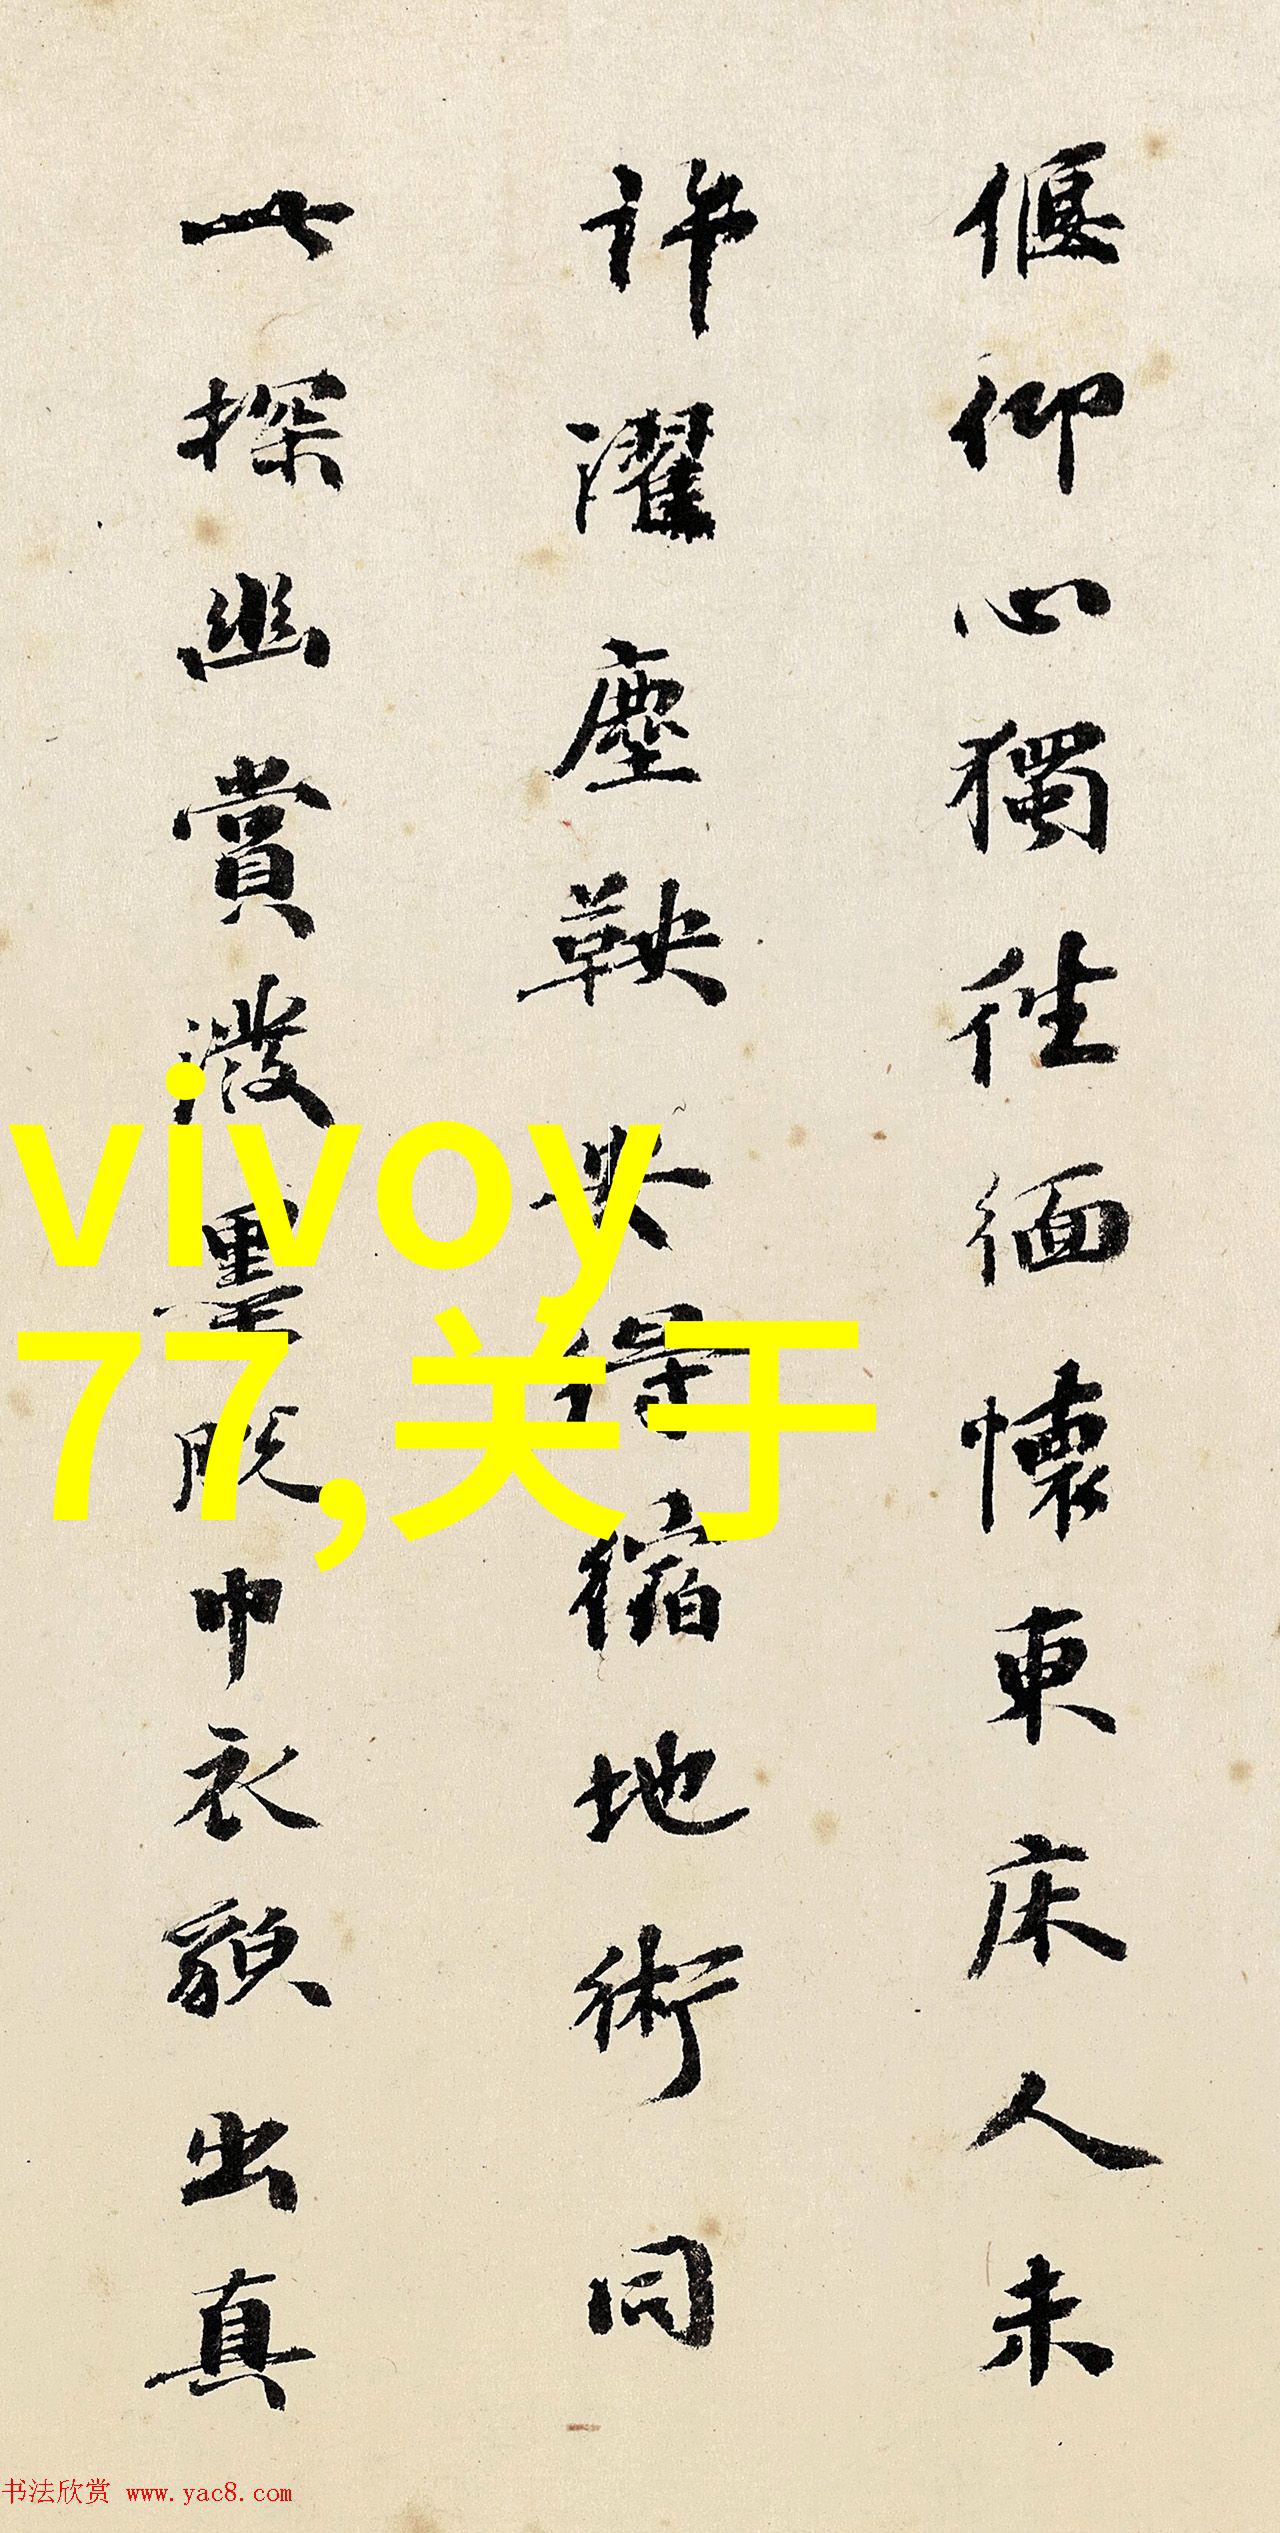 偃仰心獨往緬懷東床人未
許濯塵鞅安得縮地術同
此探幽賞潑墨脫巾衣貌出真
vivoy
77,关于
书法欣赏 www.yac8.com